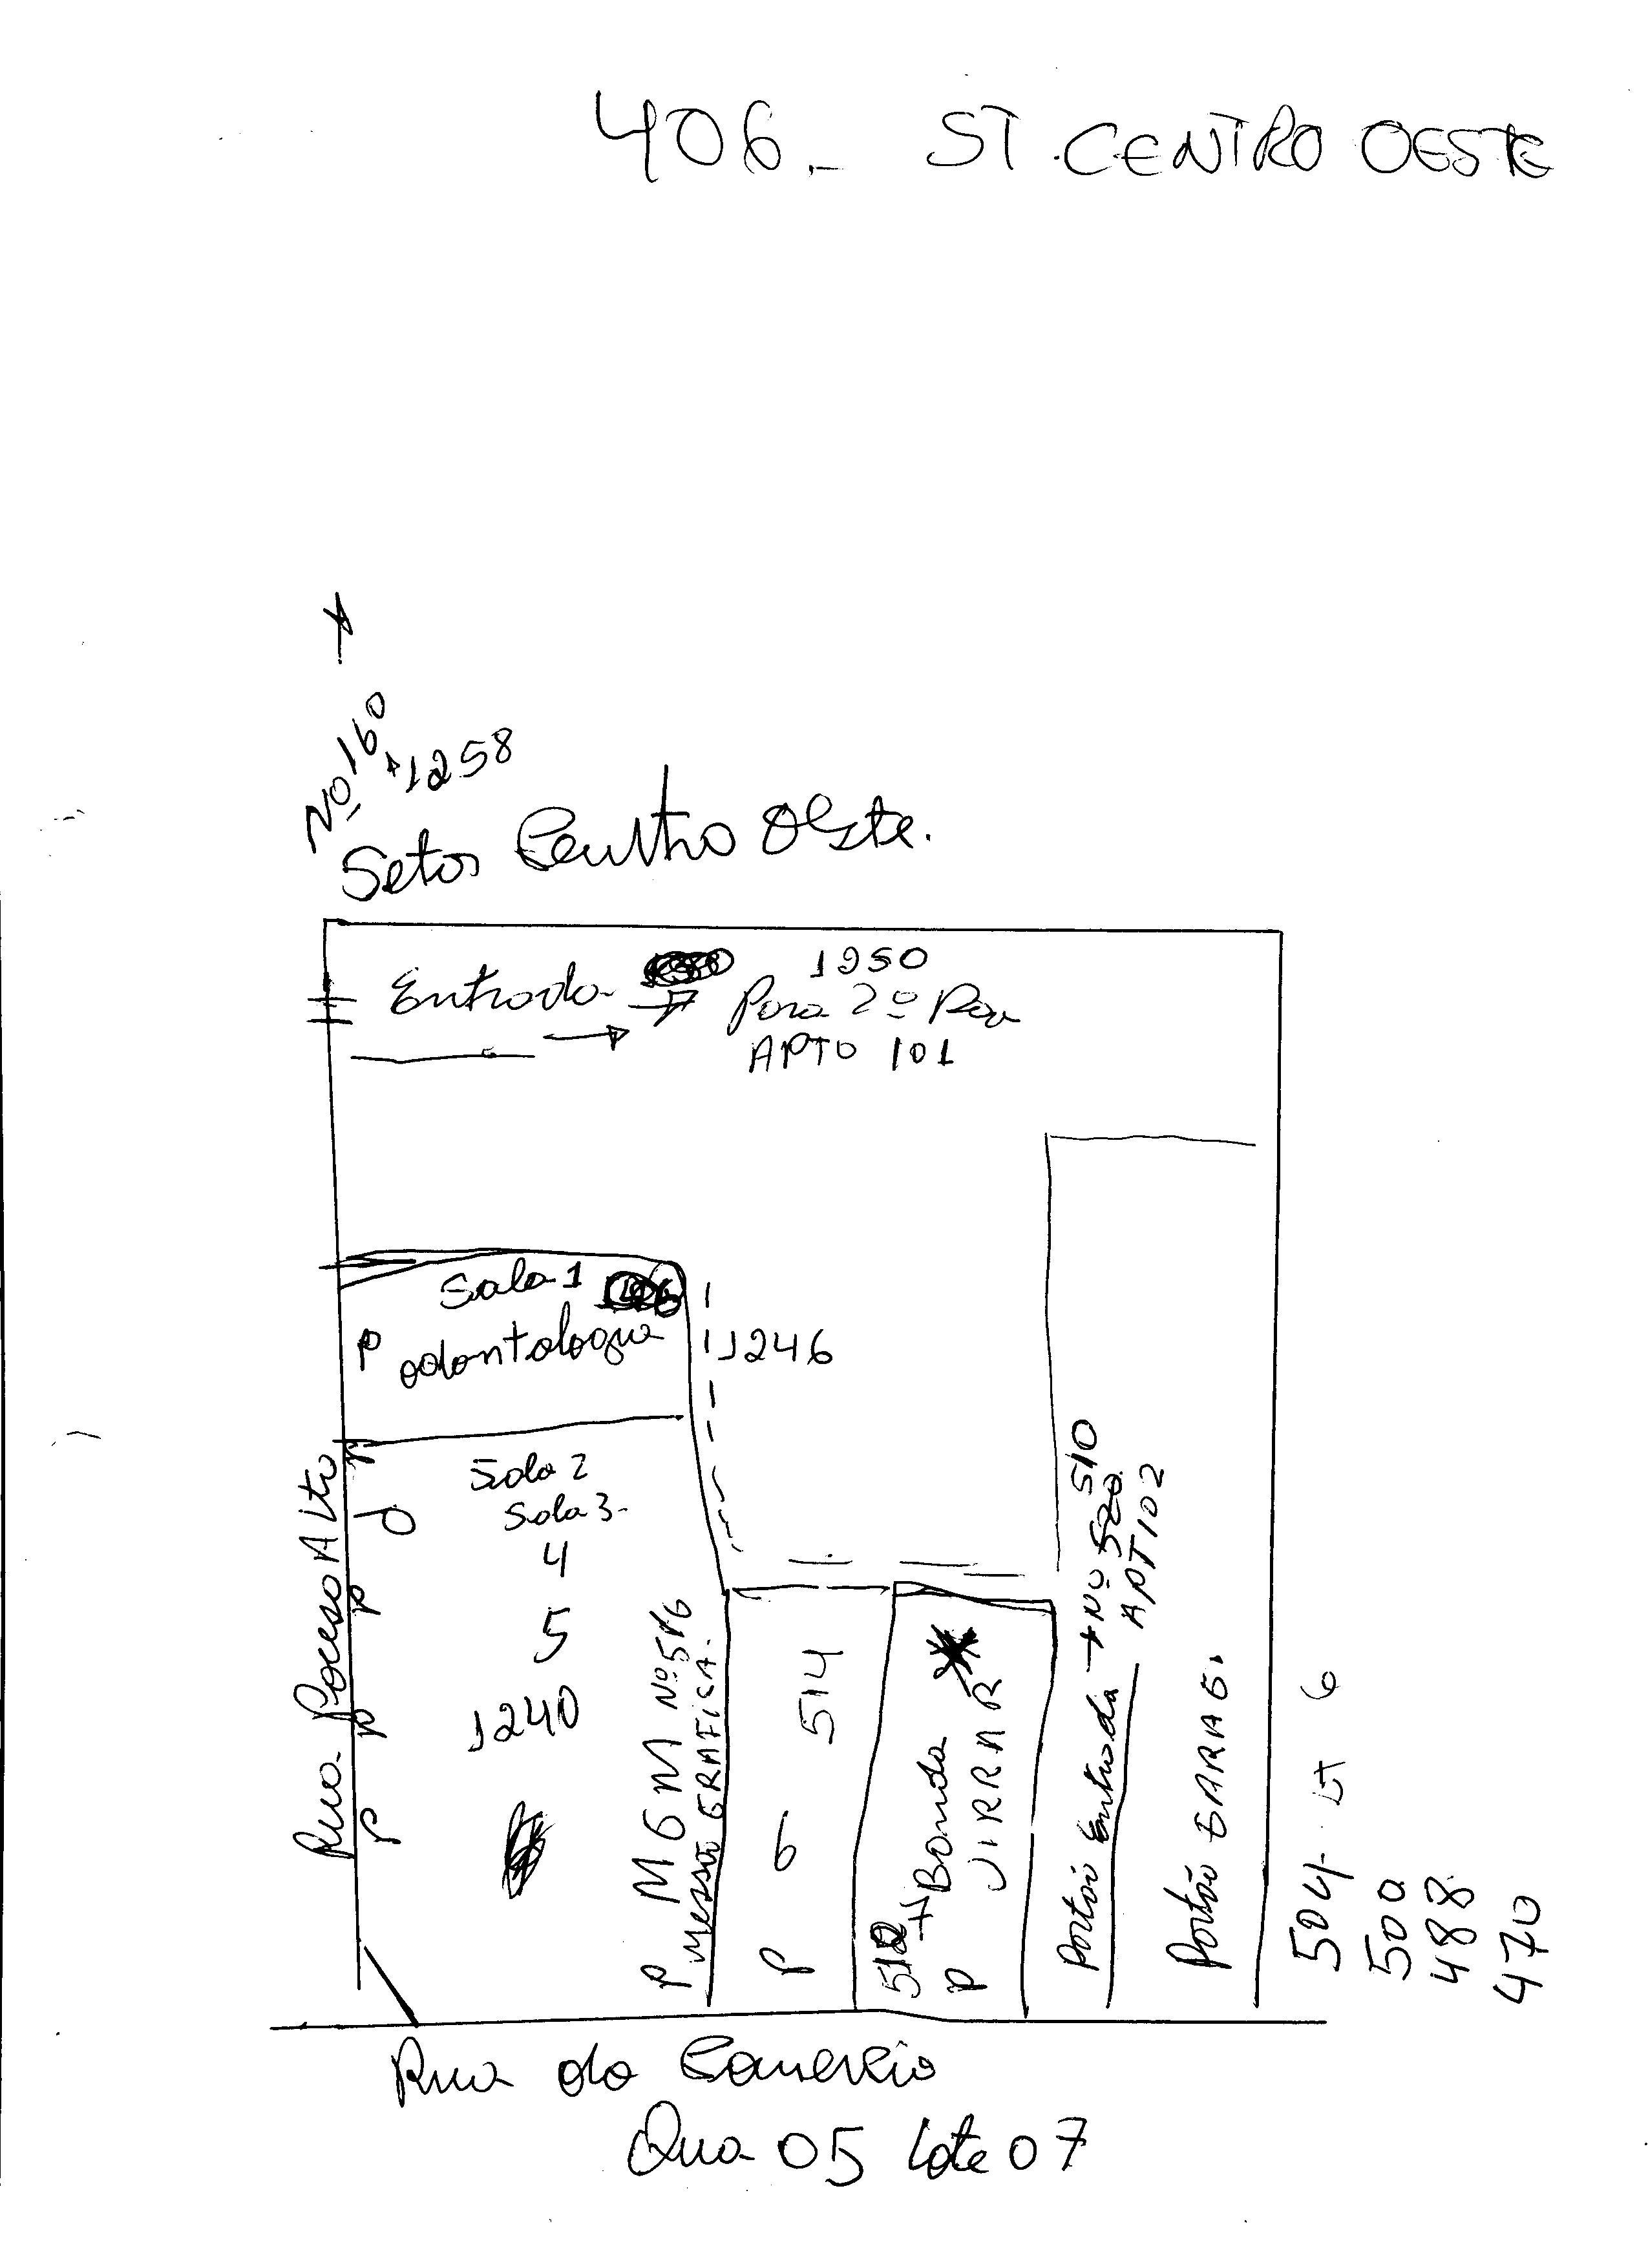 406.- ST. CENTRO OESTE
Nº 160
1258
Setor Centro Oeste.
Entrada 1250
Para 2º Pav
APTO 101
Sala 1
P odontologia 1246
Sala 2
Sala 3-
4
5
1240
Rua Pouso Alto
P
P
P
P
P MGM Nº 516
GRAFICA.
P 6 514
512 Bomda
P JIRRAR
Portão Entrada → Nº 520 510
APT 102
Portão GARAG.
504- LT 6
500
488
470
Rua do Comercio
Qua 05 Lote 07